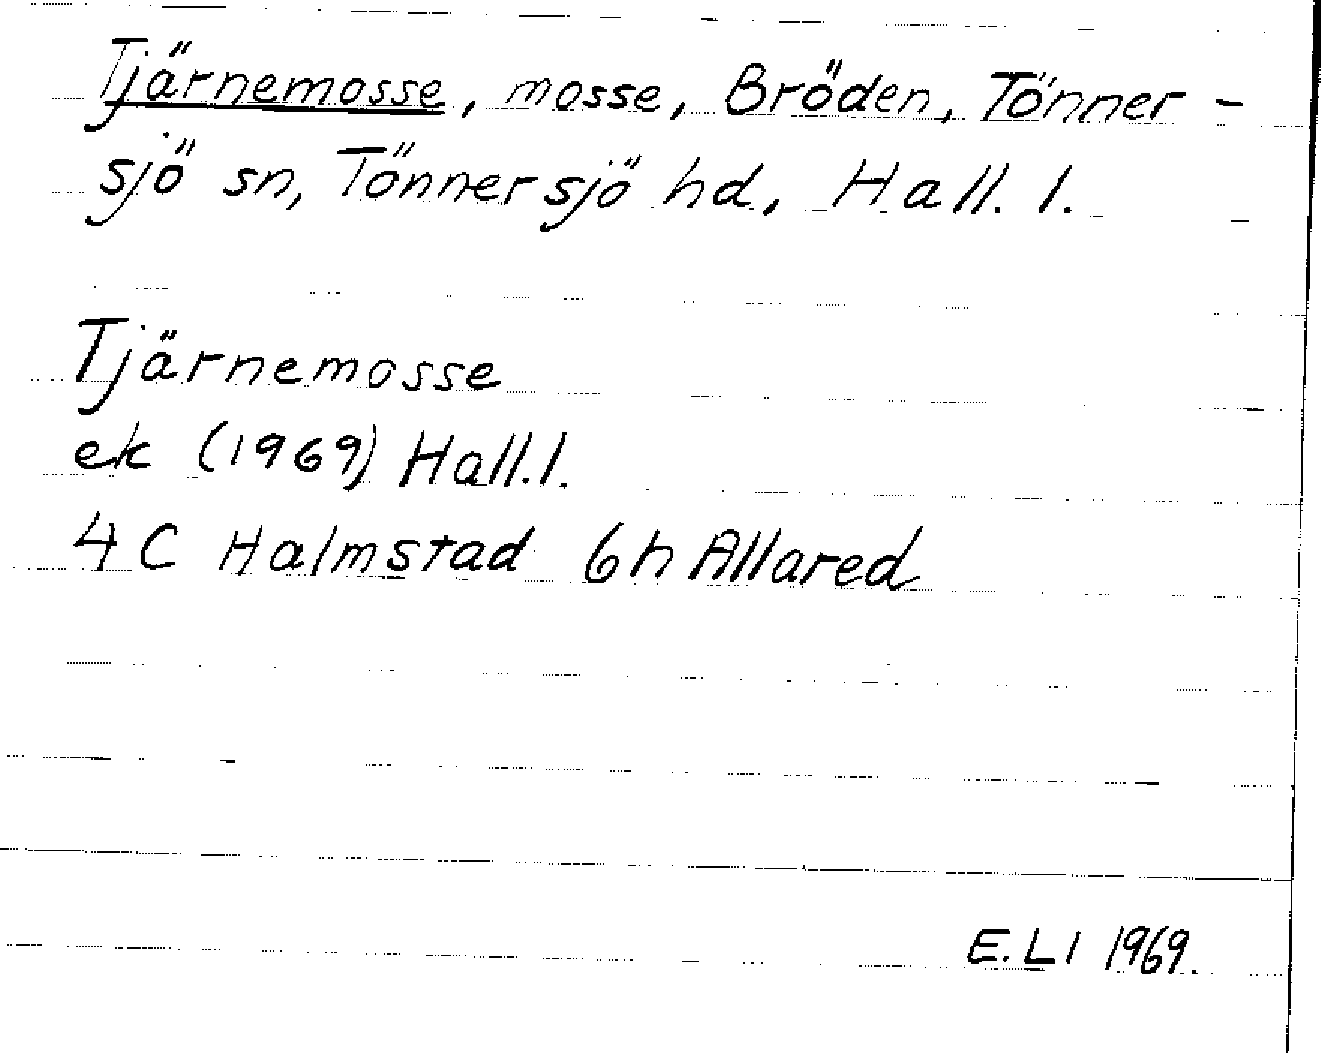 Tjärnemosse, mosse, Bröden, Tönner-
sjö sn, Tönnersjö hd, Hall. l.
Tjärnemosse
ek (1969) Hall. l.
4 C Halmstad 6h Allared
E. LI 1969.